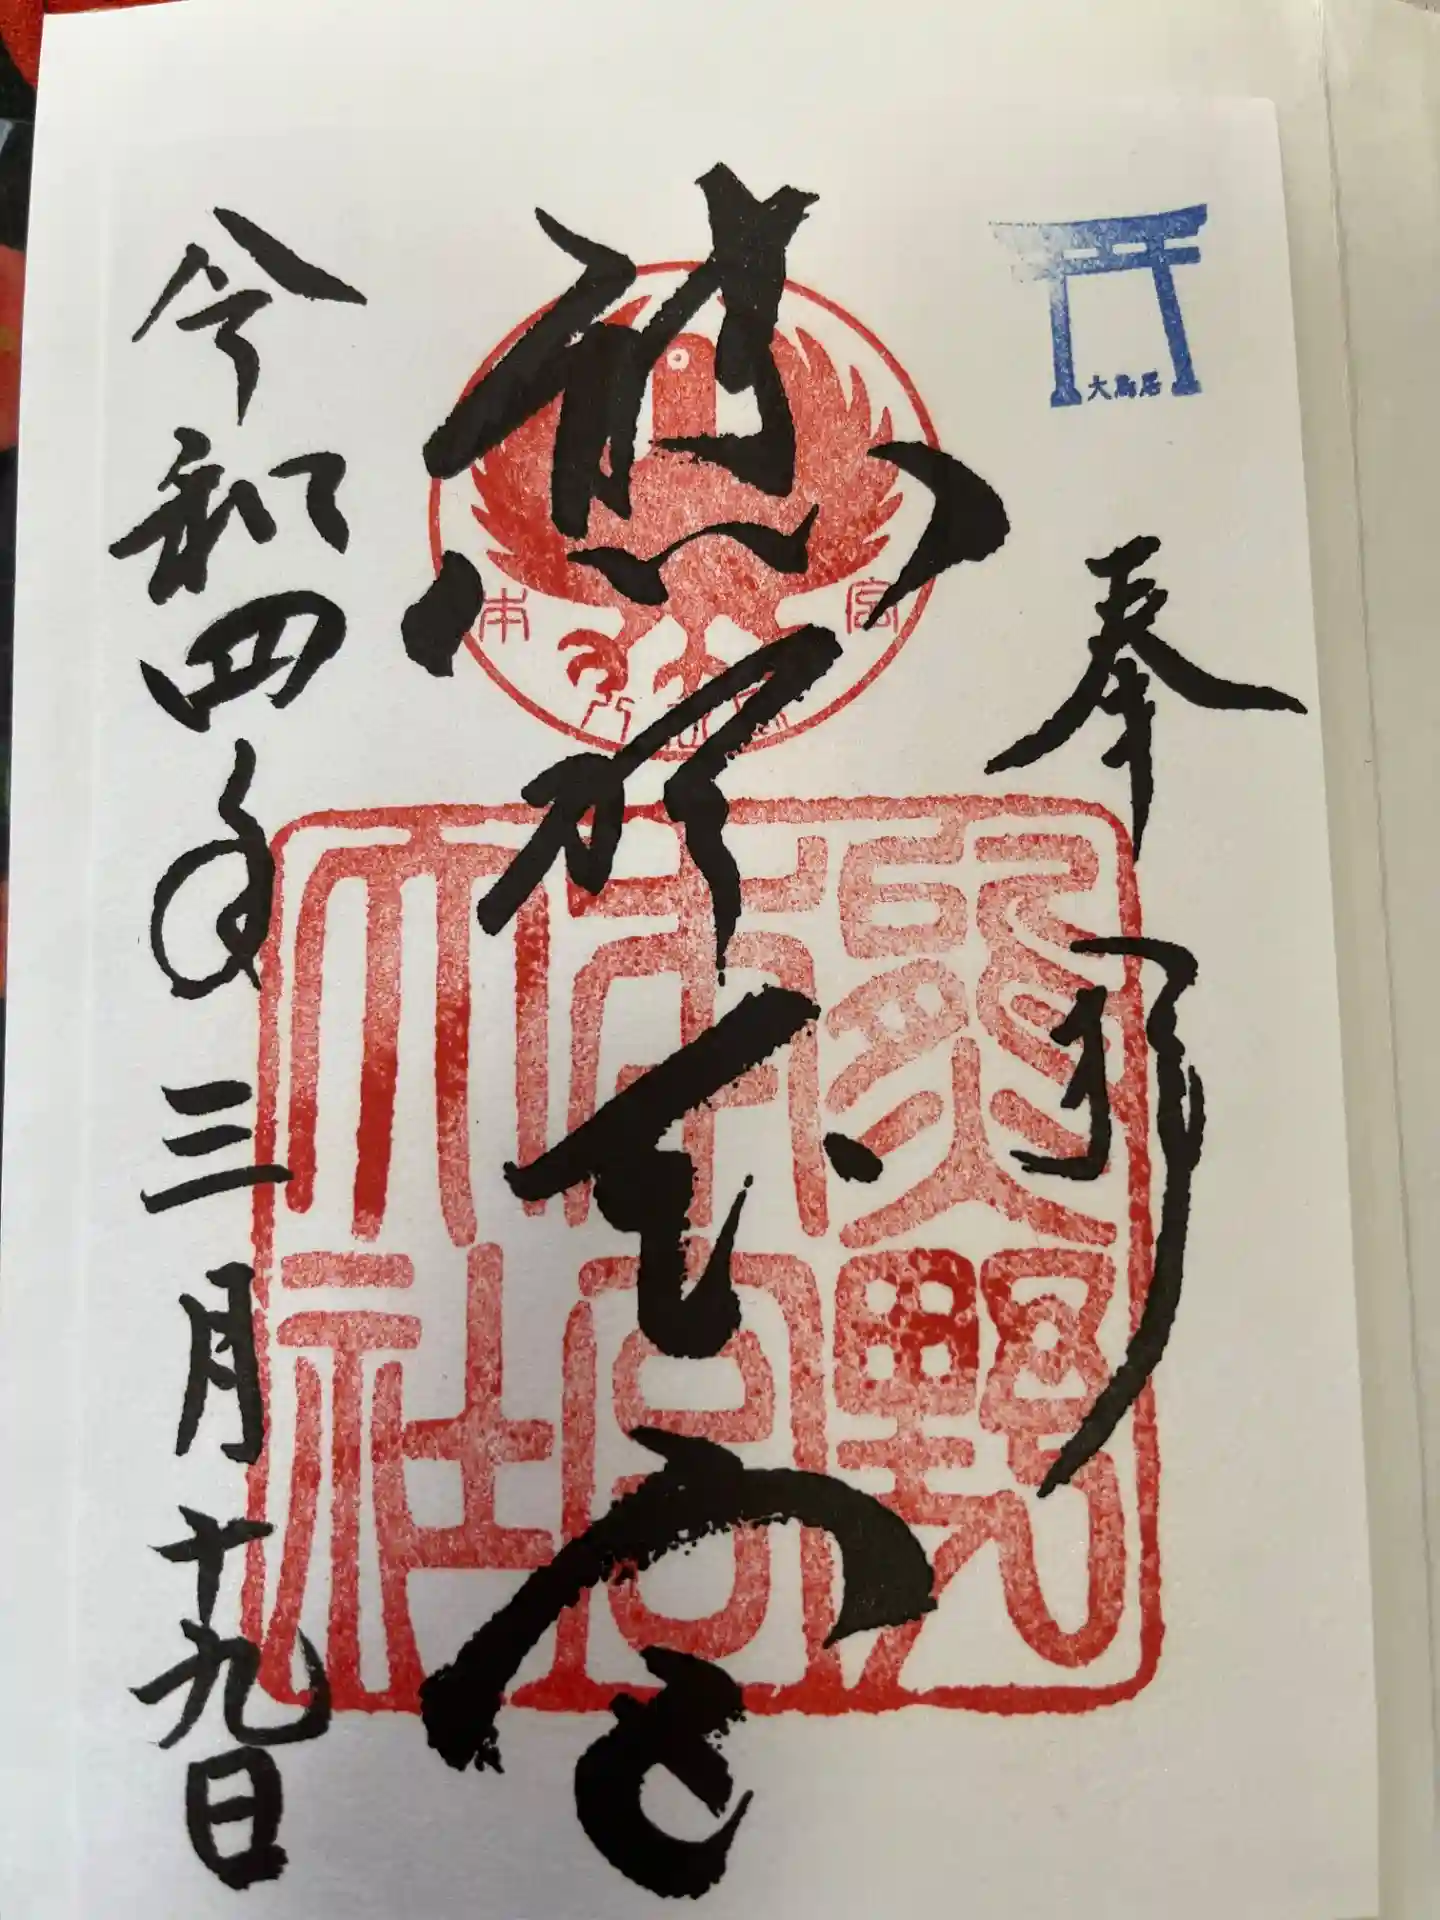 大鳥居
奉拝
熊野本宮
本宮
熊野
本宮
大社
令和四年三月十九日